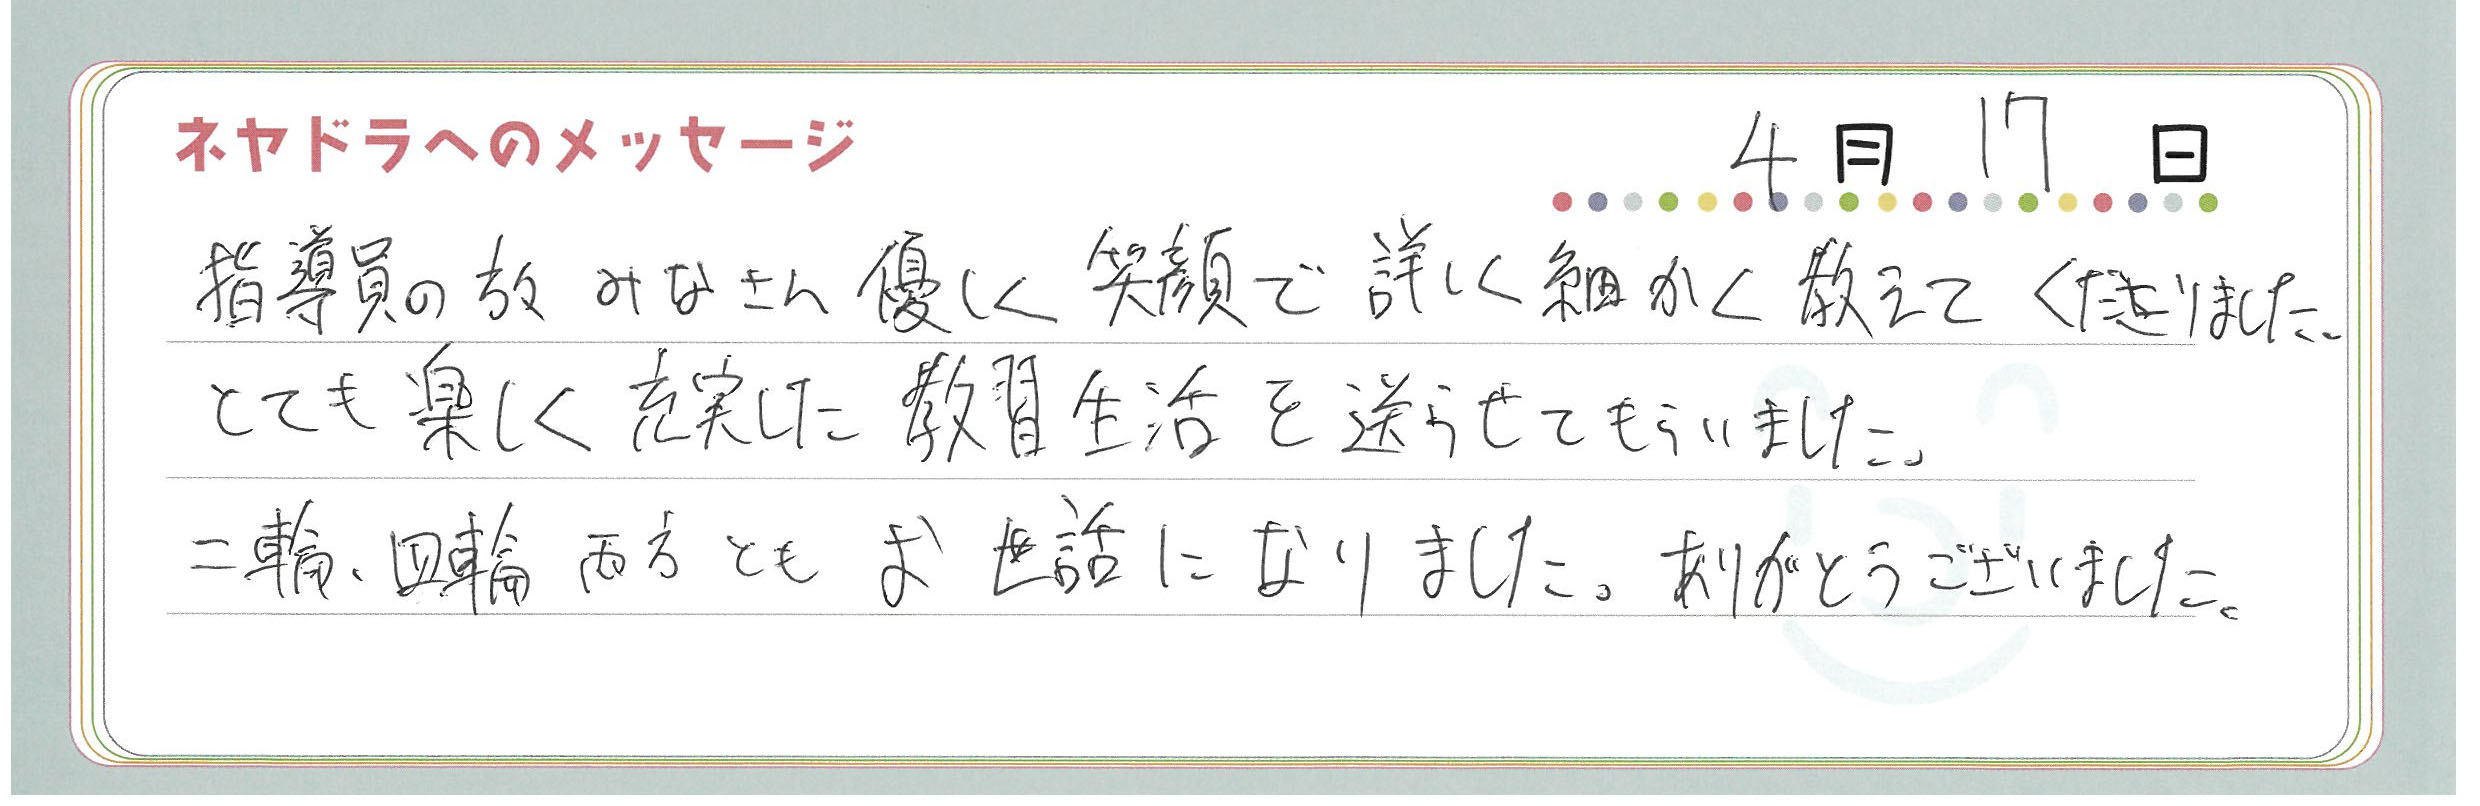 ネヤドラへのメッセージ
4月17日
指導員の方 みなさん 優しく 笑顔で 詳しく 細かく 教えて くださりました。
とても 楽しく 充実した 教習生活を送らせてもらいました。
二輪、四輪 両方とも お世話に なりました。ありがとうございました。